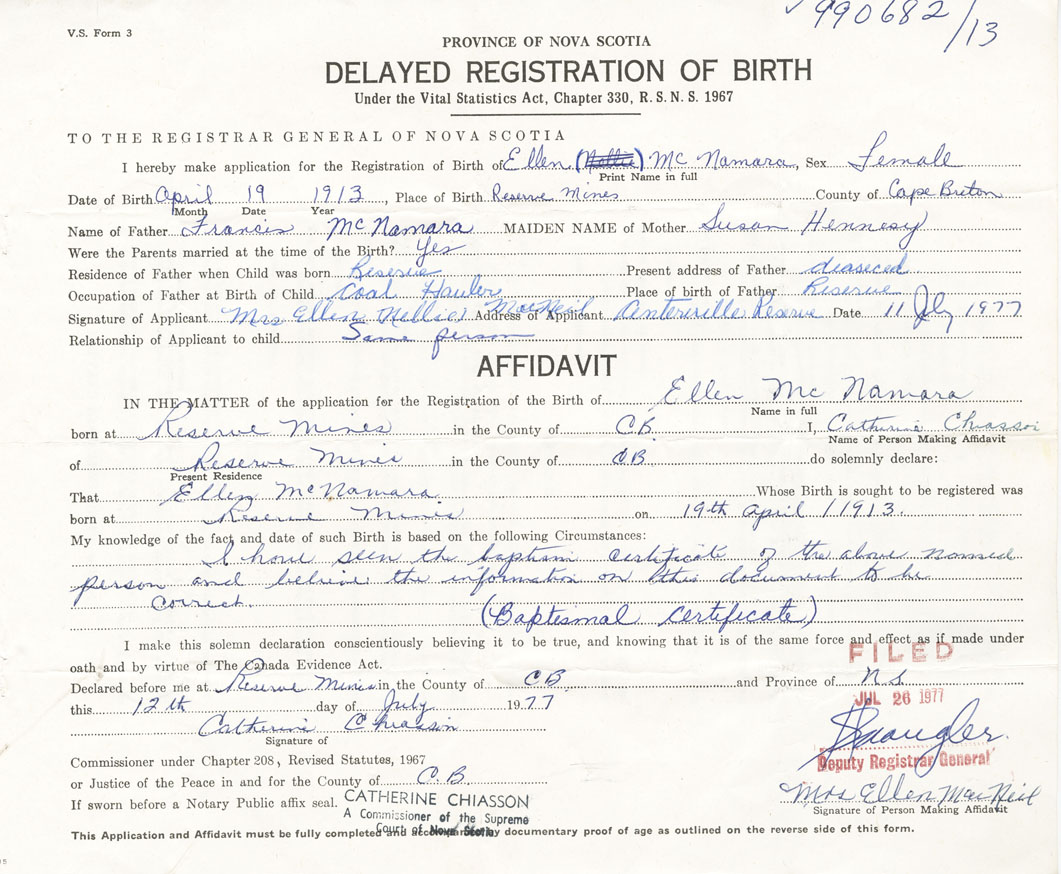 V.S. Form 3
990682/13
PROVINCE OF NOVA SCOTIA
DELAYED REGISTRATION OF BIRTH
Under the Vital Statistics Act, Chapter 330, R.S.N.S. 1967
TO THE REGISTRAR GENERAL OF NOVA SCOTIA
I hereby make application for the Registration of Birth of Ellen (Nellie) Mc Namara, Sex Female
Print Name in full
Date of Birth April 19 1913, Place of Birth Reserve Mines County of Cape Breton
Month Date Year
Name of Father Francis McNamara MAIDEN NAME of Mother Susan Hennesy
Were the Parents married at the time of the Birth? Yes
Residence of Father when Child was born Reserve Present address of Father deaseced
Occupation of Father at Birth of Child Coal Hauler Place of birth of Father Reserve
Signature of Applicant Mrs Ellen Nellie MacNeil Address of Applicant Reserve Date 11 July 1977
Relationship of Applicant to child Same person
AFFIDAVIT
IN THE MATTER of the application for the Registration of the Birth of Ellen Mc Namara
Name in full
born at Reserve Mines in the County of CB. I, Catherine Chiasson
Name of Person Making Affidavit
of Reserve Mines in the County of CB do solemnly declare:
Present Residence
That Ellen McNamara Whose Birth is sought to be registered was
born at Reserve Mines on 19th April / 1913.
My knowledge of the fact and date of such Birth is based on the following Circumstances:
I have seen the baptism certificate of the above named
person and believe the information on this document to be
correct.
(Baptesmal Certificate)
I make this solemn declaration conscientiously believing it to be true, and knowing that it is of the same force and effect as if made under
oath and by virtue of The Canada Evidence Act.
FILED
Declared before me at Reserve Mines in the County of CB and Province of N.S.
this 12th day of July 1977
JUL 26 1977
Catherine Chiasson
Signature of
Deputy Registrar General
Commissioner under Chapter 208, Revised Statutes, 1967
or Justice of the Peace in and for the County of C.B.
If sworn before a Notary Public affix seal.
CATHERINE CHIASSON
A Commissioner of the Supreme
Court of Nova Scotia
Mrs Ellen MacNeil
Signature of Person Making Affidavit
This Application and Affidavit must be fully completed and accompanied by documentary proof of age as outlined on the reverse side of this form.